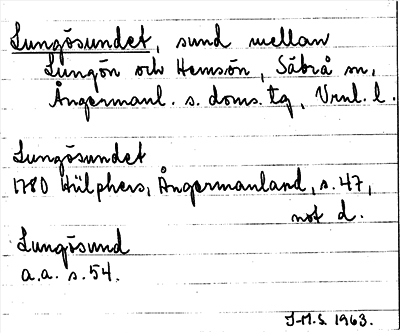 Lungösundet, sund mellan
Lungön och Hemsön, Säbrå sn,
Ångermanl. s. doms. tg, Vrnl. l.
Lungösundet
1780 Hülphers, Ångermanland, s. 47,
not d.
Lungösund
a.a. s. 54.
I-M.S. 1963.